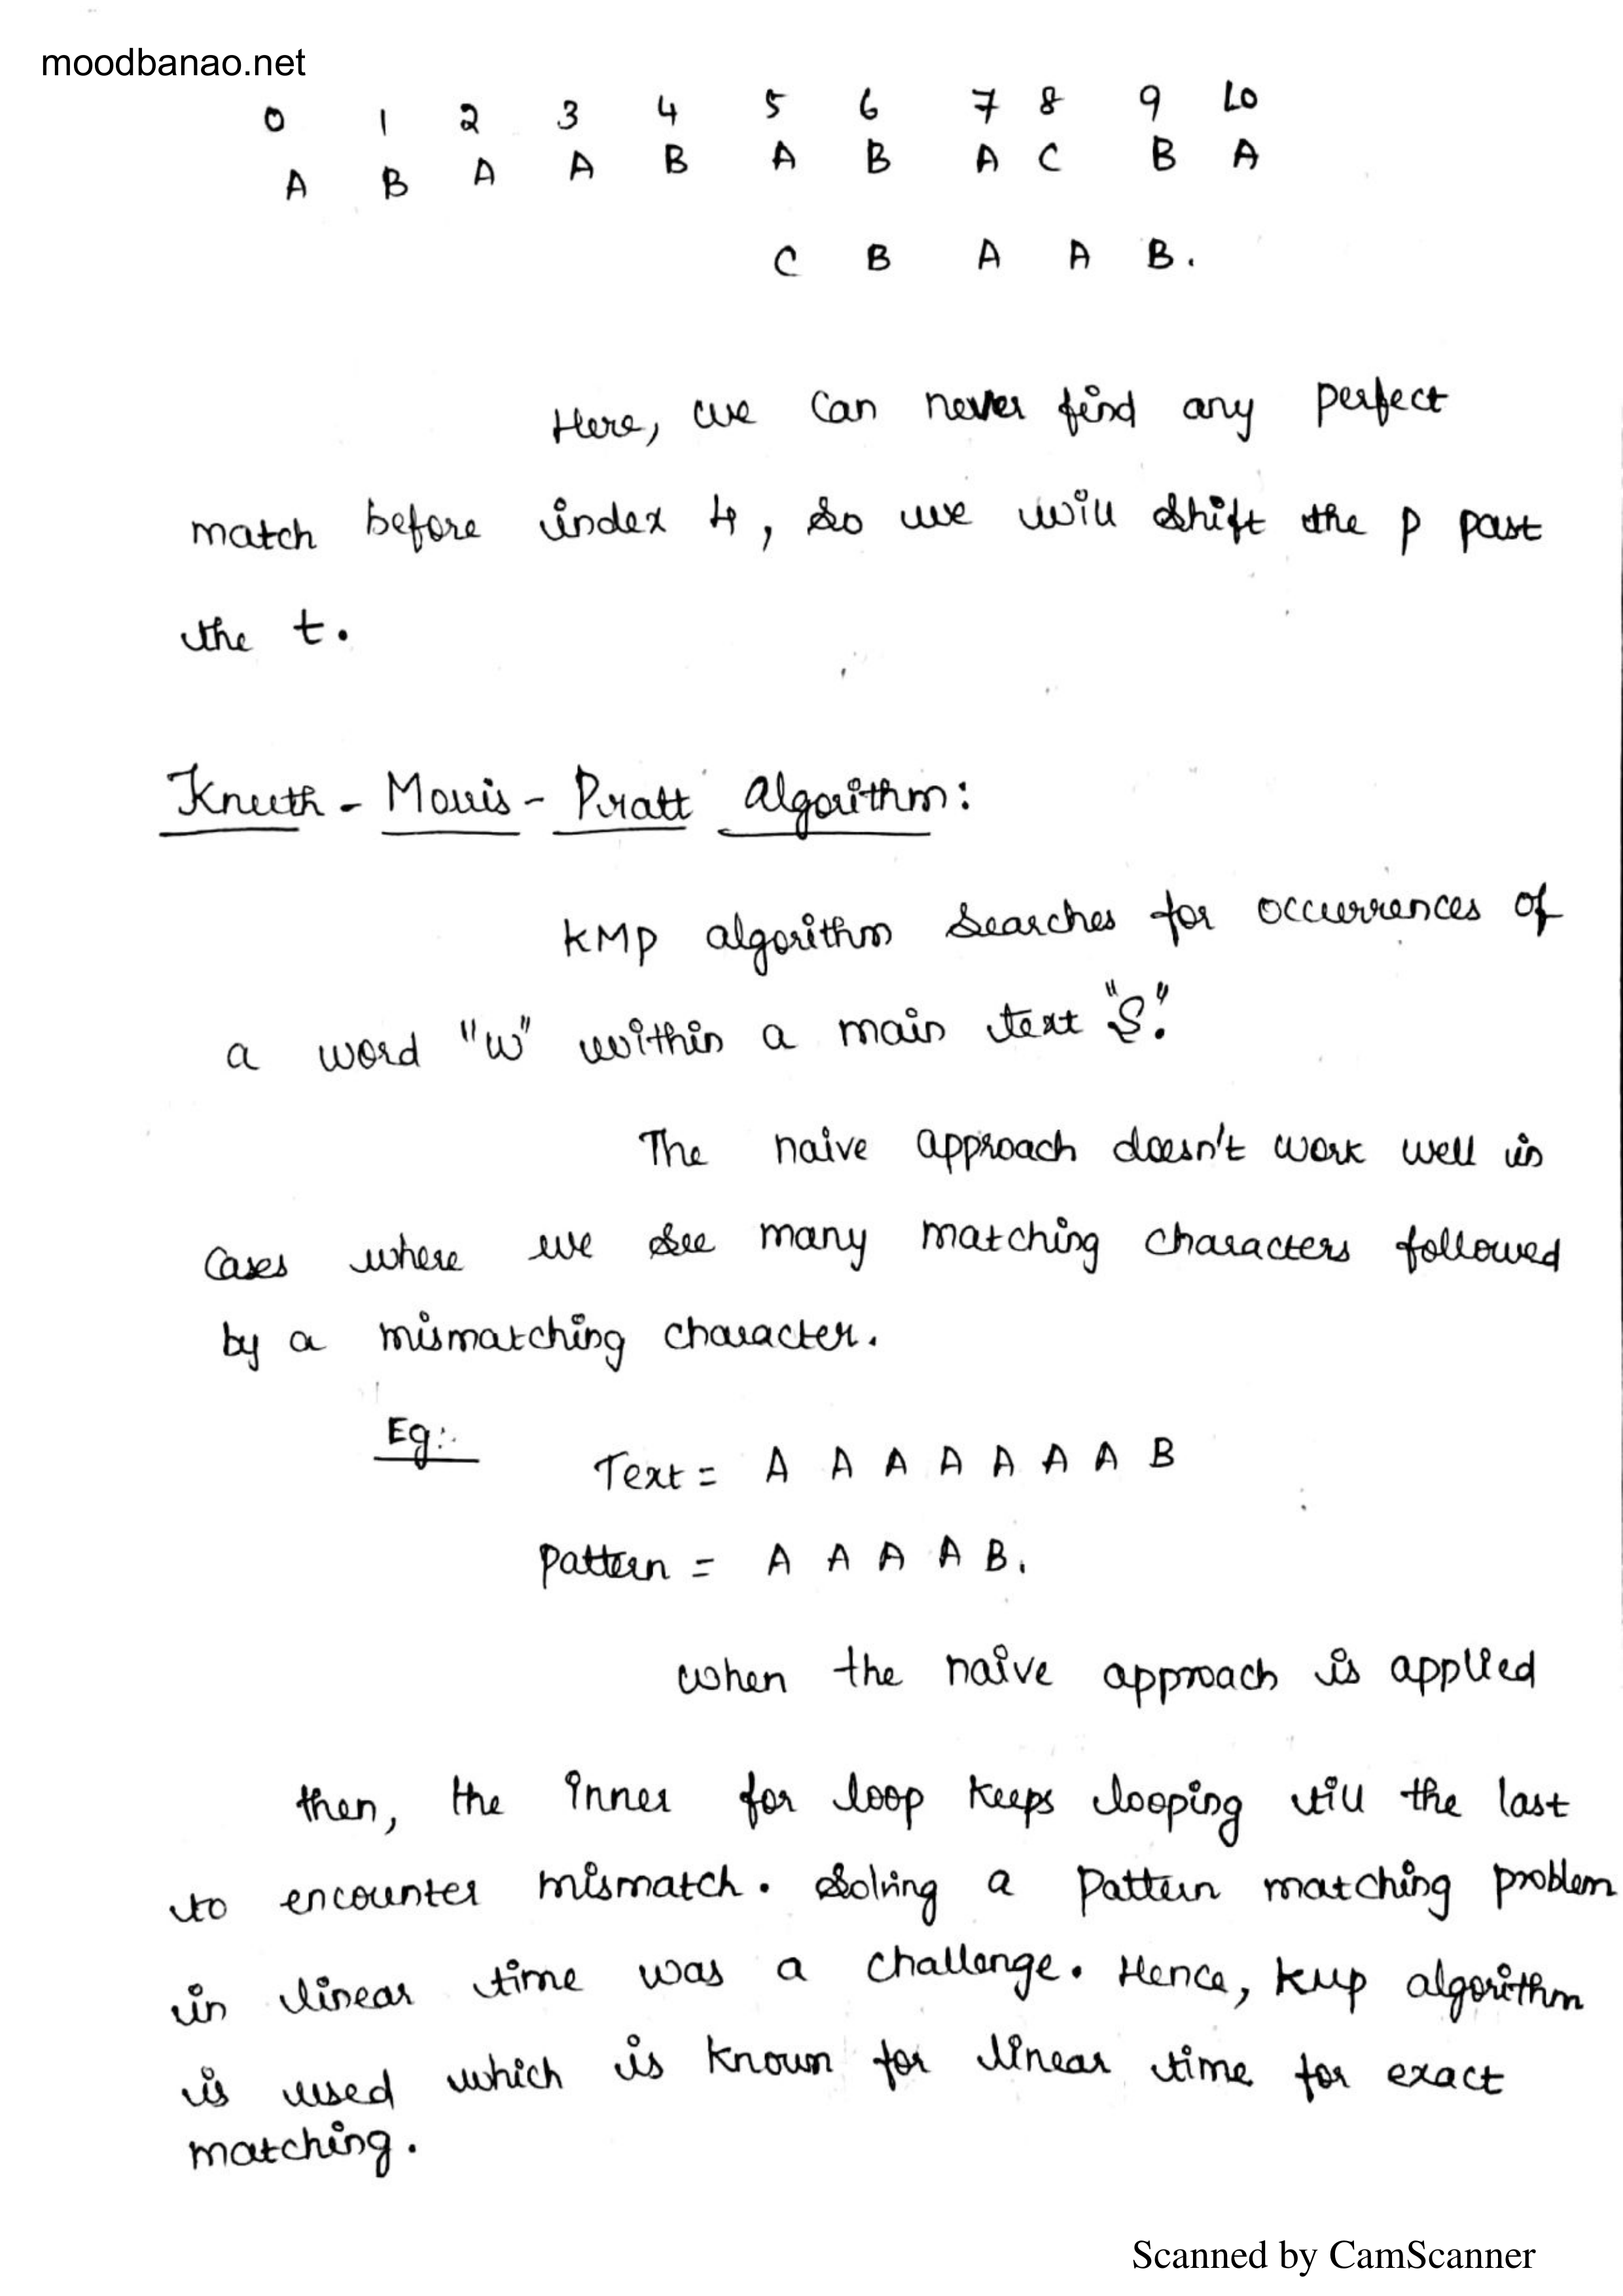 moodbanao.net
0 1 2 3 4 5 6 7 8 9 10
A B A A B A B A C B A
C B A A B.
Here, we can never find any perfect
match before index 4, so we will shift the p past
the t.
Knuth - Morris - Pratt Algorithm:
KMP algorithm searches for occurrences of
a word "W" within a main text "S".
The naive approach doesn't work well in
Cases where we see many matching characters followed
by a mismatching character.
Eg:-
Text = A A A A A A A B
Pattern = A A A A B.
When the naive approach is applied
then, the inner for loop keeps looping till the last
to encounter mismatch. Solving a Pattern matching problem
in linear time was a challenge. Hence, KMP algorithm
is used which is known for linear time for exact
matching.
Scanned by CamScanner